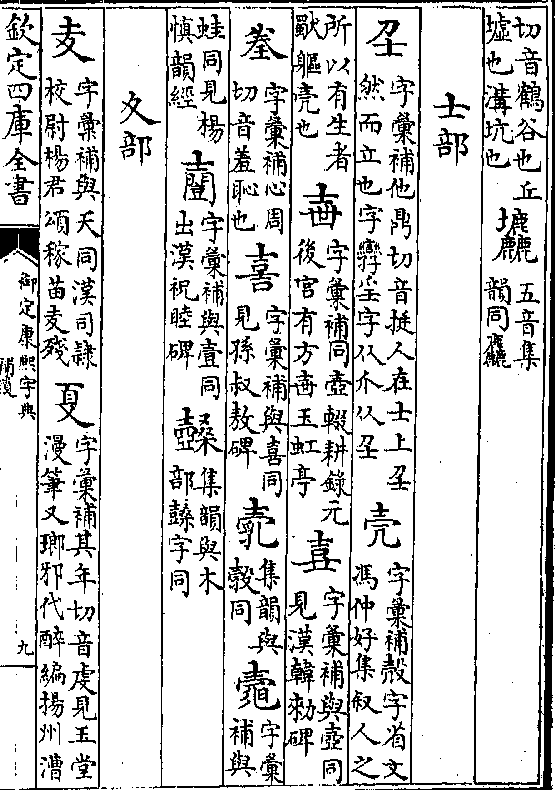 切音鶴谷也丘
墟也溝坑也
五音集
韻同
士部
字彙補他鼎切音挺人在士上𡈼
然而立也字𡈼字从介从𡈼
字彙補殼字省文
馮仲好集叙人之
所以有生者
歐軀壳也
字彙補同壺輟耕錄元
後宮有方壺玉虹亭
字彙補與壺同
見漢韓勅碑
字彙補心周
切音羞恥也
字彙補與喜同
見孫叔敖碑
集韻與
㲉同
字彙
補與
蛙同見楊
慎韻經
字彙補與壹同
出漢祝睦碑
集韻與木
部字同
夊部
字彙補與夭同漢司隷
校尉楊君頌稼苗夭殘
字彙補其年切音虔見玉堂
漫筆又瑯邪代醉編揚州漕
欽定四庫全書
御定康熙字典
補遺
九